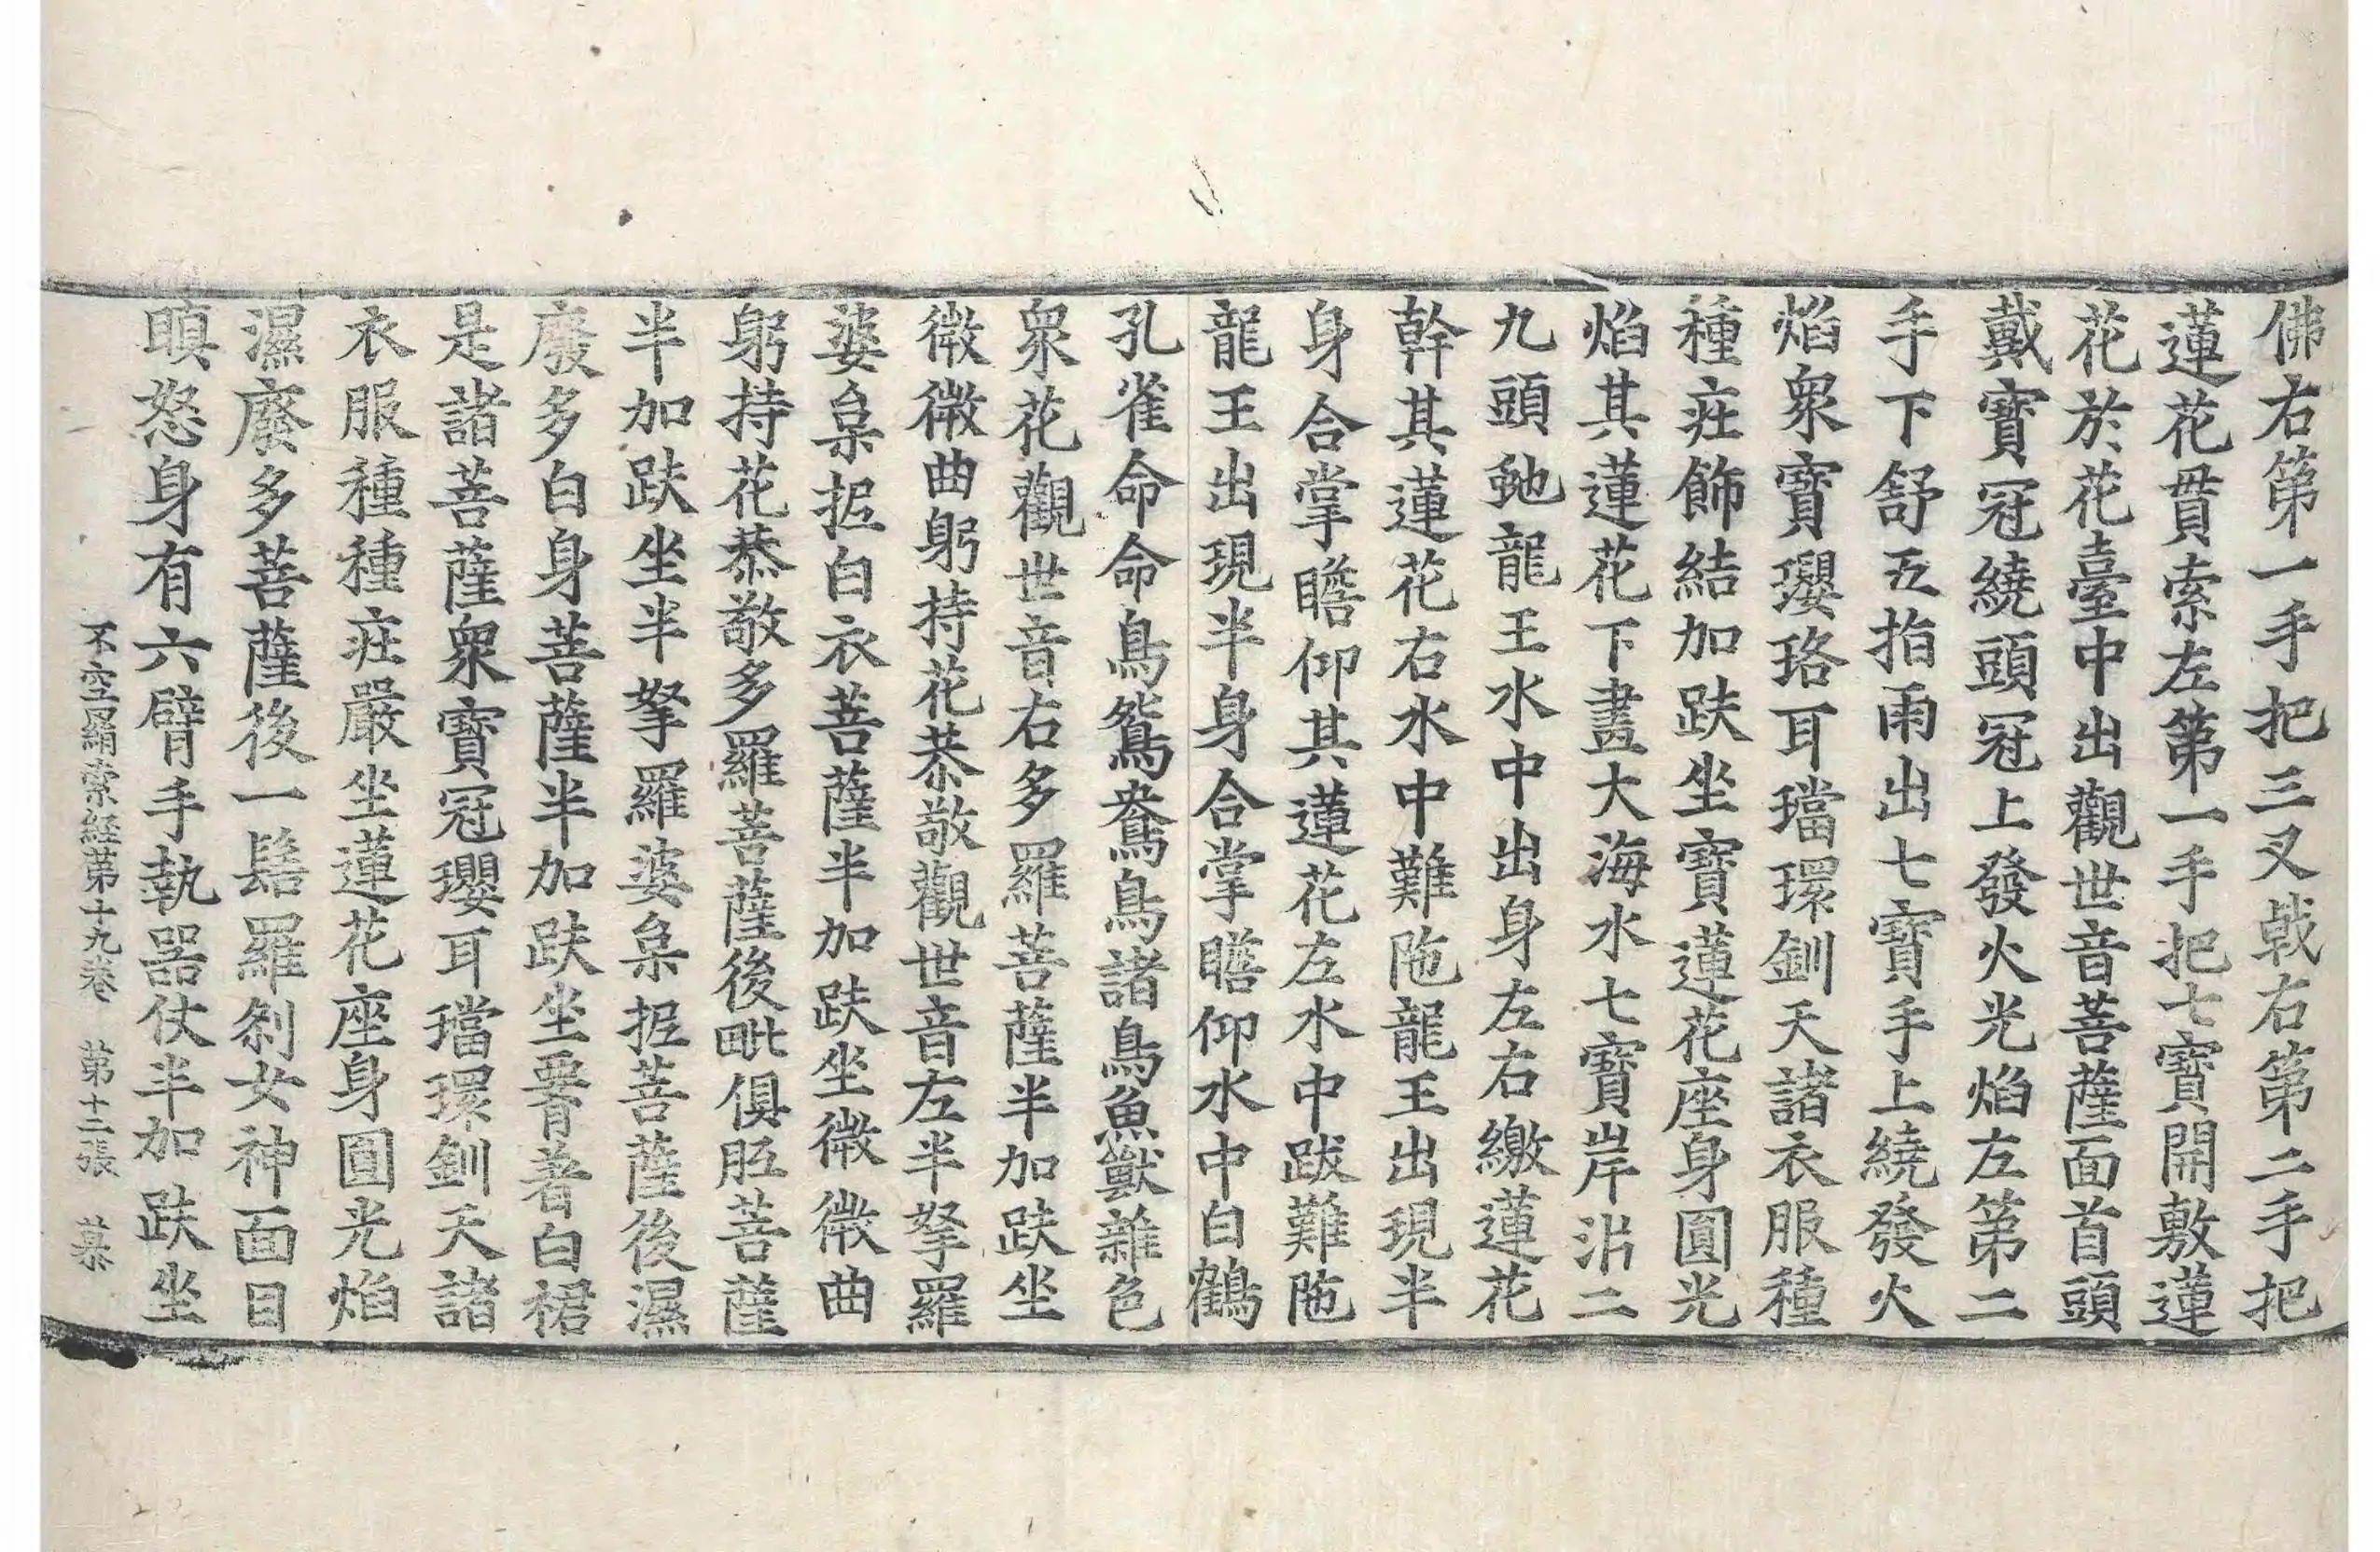 佛右第一手把三叉戟右第二手把
蓮花貫索左第一手把七寶開敷蓮
花於花臺中出觀世音菩薩面首頭
戴寶冠繞頭冠上發火光焰左第二
手下舒五指雨出七寶手上繞發火
焰衆寶瓔珞耳璫環釧天諸衣服種
種莊飾結加趺坐寶蓮花座身圓光
焰其蓮花下畫大海水七寶岸泚二
九頭虵龍王水中出身左右繳蓮花
幹其蓮花右水中難陁龍王出現半
身合掌瞻仰其蓮花左水中跋難陁
龍王出現半身合掌瞻仰水中白鶴
孔雀命命鳥鴛鴦鳥諸鳥魚獸雜色
衆花觀世音右多羅菩薩半加趺坐
微微曲躬持花恭敬觀世音左半拏羅
婆枲抳白衣菩薩半加趺坐微微曲
躬持花恭敬多羅菩薩後毗俱胝菩薩
半加趺坐半拏羅婆枲抳菩薩後濕
廢多白身菩薩半加趺坐要著白裙
是諸菩薩衆寶冠瓔耳璫環釧天諸
衣服種種莊嚴坐蓮花座身圓光焰
濕廢多菩薩後一髻羅剎女神面目
瞋怒身有六臂手執器仗半加趺坐
不空羂索経第十九卷　第十二張　慕